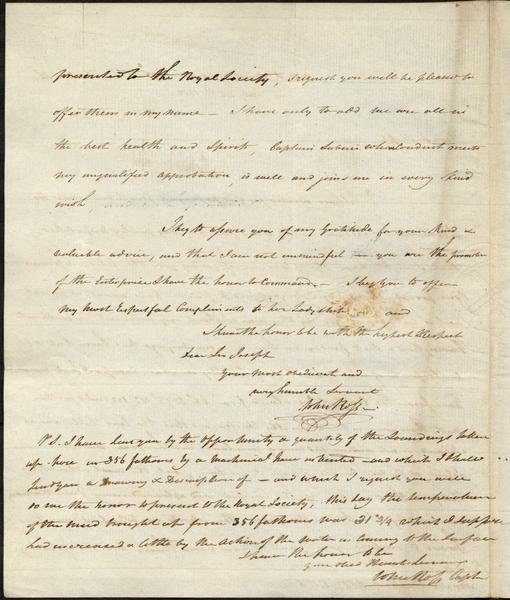 presented to the Royal Society, I request you will be pleased to
offer them in my name – I have only to add we are all in
the best health and Spirits, Captain Sabine whose Conduct meets
my unqualified approbation, is well and joins me in every kind
wish,
I beg to assure you of my Gratitude for your kind &
valuable advice, and that I am not unmindful – you are the promoter
of the Enterprise I have the honor to Command, – I beg you to offer
my most Respectful Compliments to her Ladyship and
I have the honor to be with the highest Respect
Dear Sir Joseph
your most obedient and
very humble Servant
John Ross
P.S. I have sent you by this opportunity a quantity of the Soundings taken
up here in 356 fathoms by a machine I have invented – and which I shall
send you a Drawing & Description of – and which I request you will
do me the honor to present to the Royal Society, this day the temperature
of the mud brought up from 356 fathoms was 31 3/4 which I suppose
had increased a little by the action of the water in coming to the Surface
I have the honor to be
your obed Humble Servant
John Ross Capt